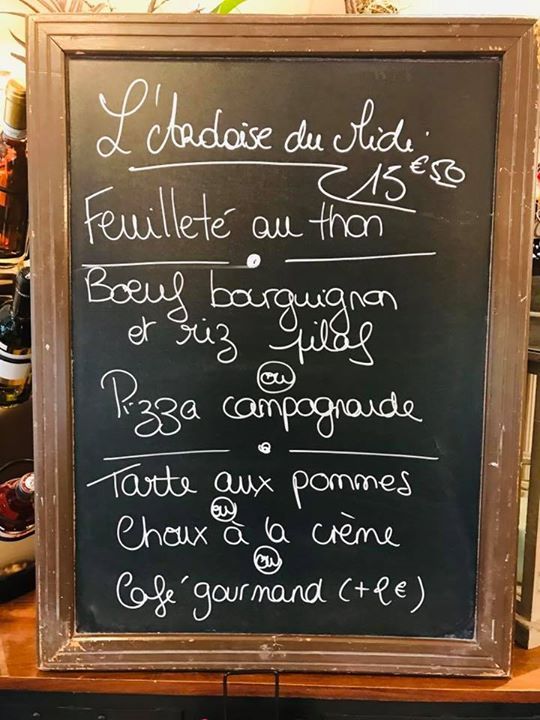 L'Ardoise du Midi
15€50
Feuilleté au thon
Boeuf bourguignon
et riz pilaf
ou
Pizza campagnarde
Tarte aux pommes
ou
Choux à la crème
ou
Café gourmand (+2€)